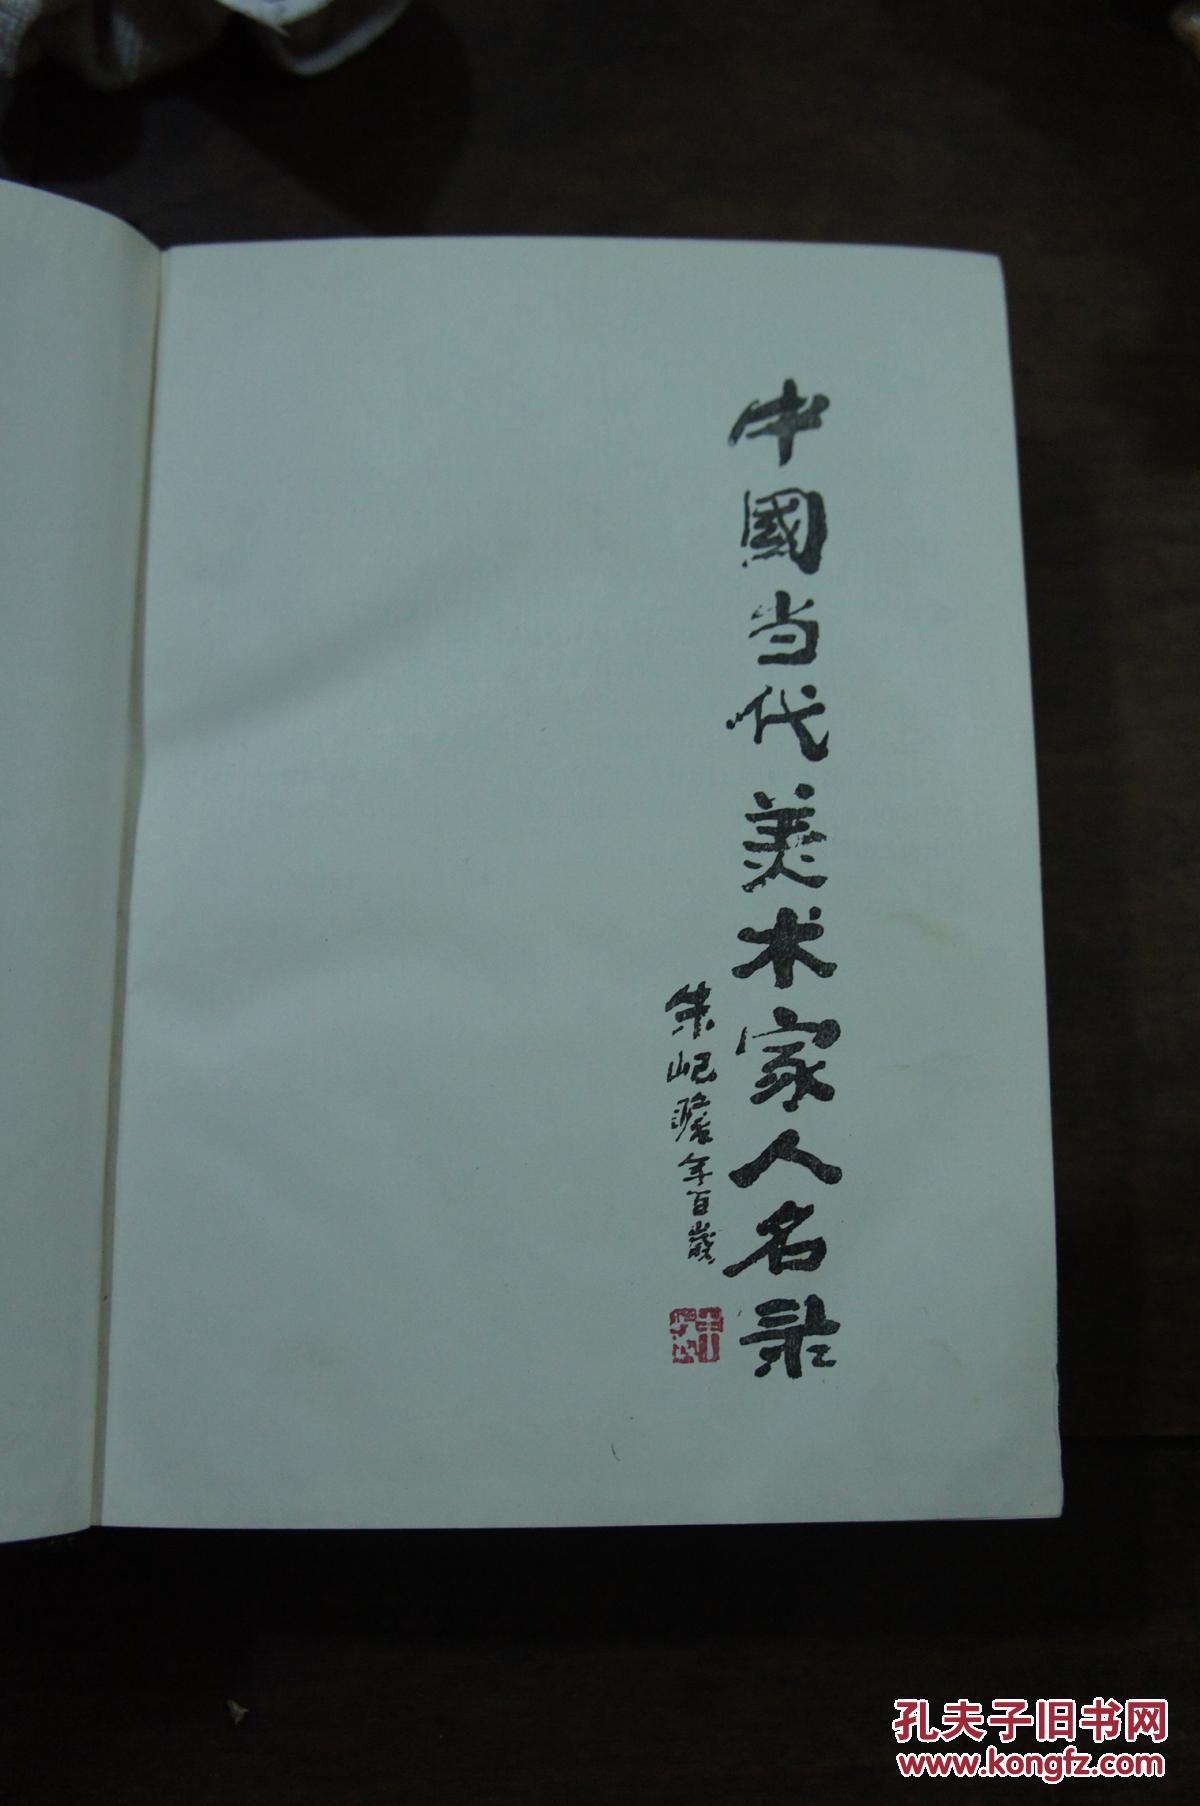 中國当代美术家人名录
朱屺瞻年百歲
孔夫子旧书网
www.kongfz.com